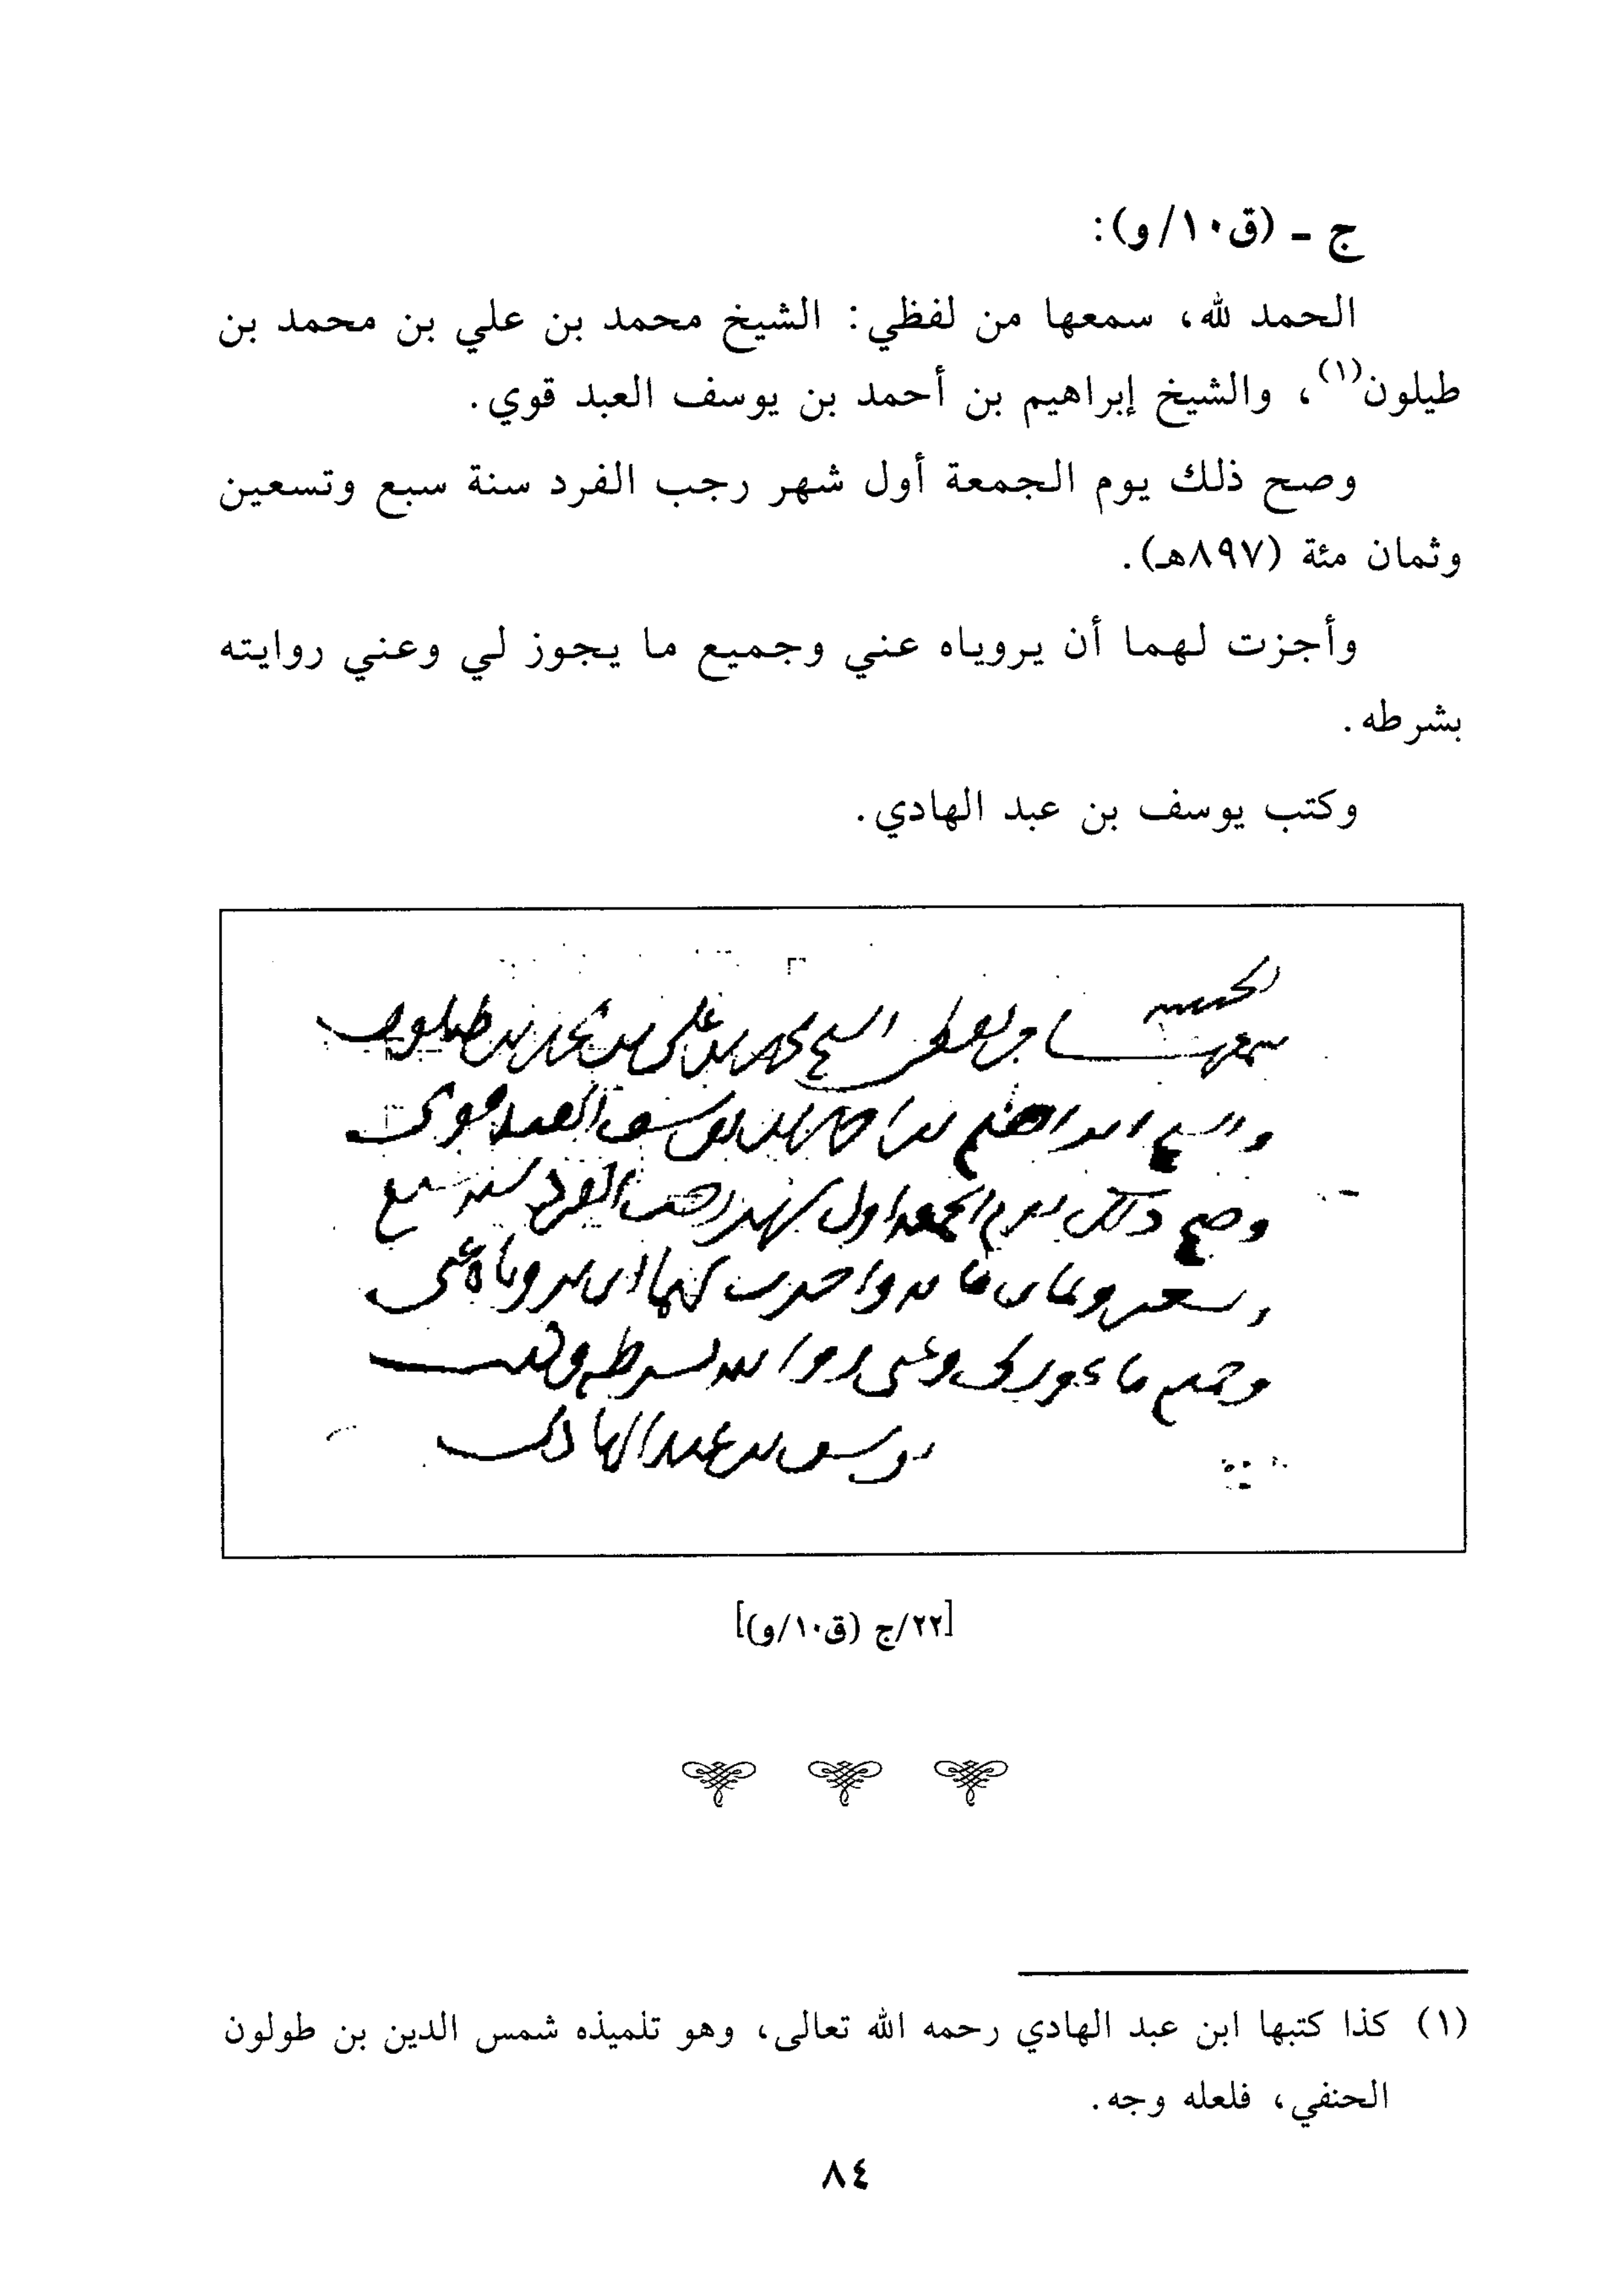 ج ـ (ق١٠/و):
الحمد لله، سمعها من لفظي: الشيخ محمد بن علي بن محمد بن
طيلون(١)، والشيخ إبراهيم بن أحمد بن يوسف العبد قوي.
وصح ذلك يوم الجمعة أول شهر رجب الفرد سنة سبع وتسعين
وثمان مئة (٨٩٧هـ).
وأجزت لهما أن يروياه عني وجميع ما يجوز لي وعني روايته
بشرطه.
وكتب يوسف بن عبد الهادي.
الحمد لله
سمعها من لفظي الشيخ محمد بن علي بن محمد بن طيلون
والشيخ ابراهيم بن احمد بن يوسف العبد قوي
وصح ذلك يوم الجمعة اول شهر رجب الفرد سنة سبع
وتسعين وثمان مائة واجزت لهما ان يروياه عني
وجميع ما يجوز لي وعني روايته بشرطه وكتب
يوسف بن عبد الهادي
[٢٢/ج (ق١٠/و)]
(١) كذا كتبها ابن عبد الهادي رحمه الله تعالى، وهو تلميذه شمس الدين بن طولون
الحنفي، فلعله وجه.
٨٤